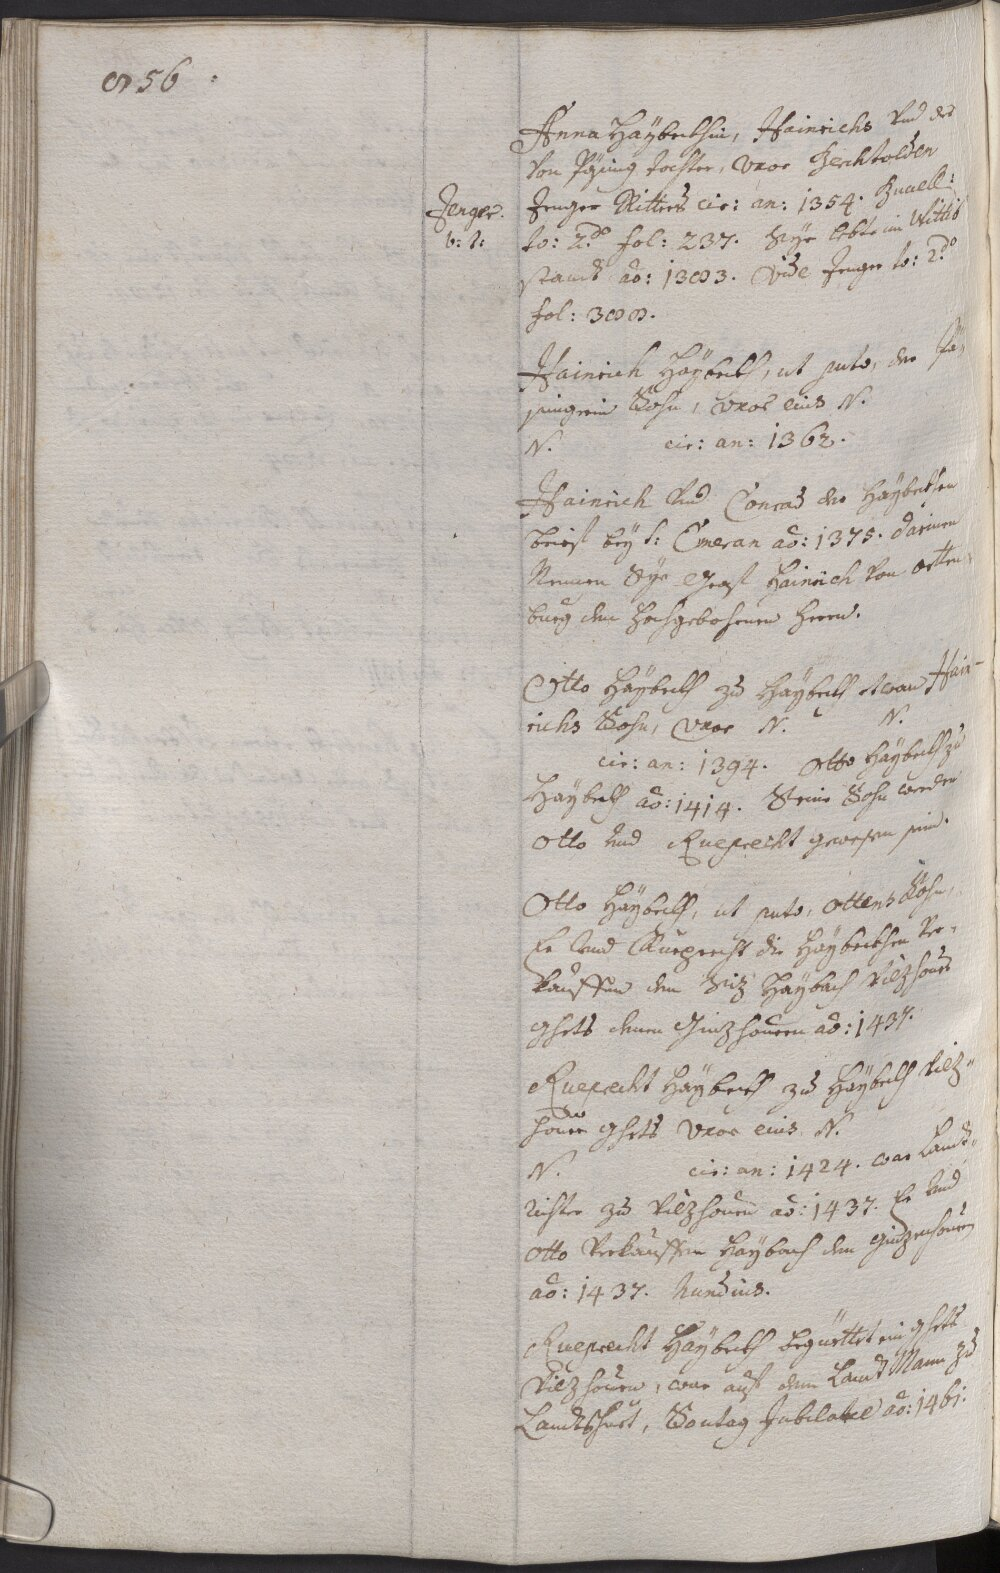 856
Anna Haÿbekhin, Hainrichs Vnd der
Von Pysing Tochter, Vxor Berchtolden
Jenger Ritters cir: an: 1354. Huaell:
to: 2.do fol: 237. Sÿe lebte im Wittib
standt ad: 1383. Vide Jenger to: 2.do
fol: 388.
Jenger.
v: I:
Hainrich Haÿbekh, ut puto, der
Sohn, Vxor eius N.
N. cir: an: 1362.
Hainrich Vnd Conrad der Haÿbekhen
brief beÿ S: Emeran ad: 1375. darinen
Nennen Sÿe Graf Hainrich Von Orten-
burg den Hochgebohrnen Herrn.
Otto Haÿbekh zu Haÿbekh etwan Hain-
richs Sohn, Vxor N. N.
cir: an: 1394. Otto Haÿbekh zu
Haÿbekh ad: 1414. Seine Söhn werden
Otto Vnd Rueprecht gewesen sein.
Otto Haÿbekh, ut puto, Ottens Sohn,
Er Vnd Rueprecht die Haÿbekhen Ver-
kauffen den Siz Haÿbach Vilzhouer
Ghrts denen Ginzhouern ad: 1437.
Rueprecht Haÿbekh zu Haÿbekh Vilz-
houer Ghrts Vxor eius N.
N. cir: an: 1424. war Landt-
richter zu Vilzhouen ad: 1437. Er Vnd
Otto Verkauffen Haÿbach den Ginzenhouern
ad: 1437. Hundius.
Rueprecht Haÿbekh begüettet im Ghrts
Vilzhouen, war auf dem Landt Mann zu
Landtshuet, Sontag Jubilate ad: 1461.